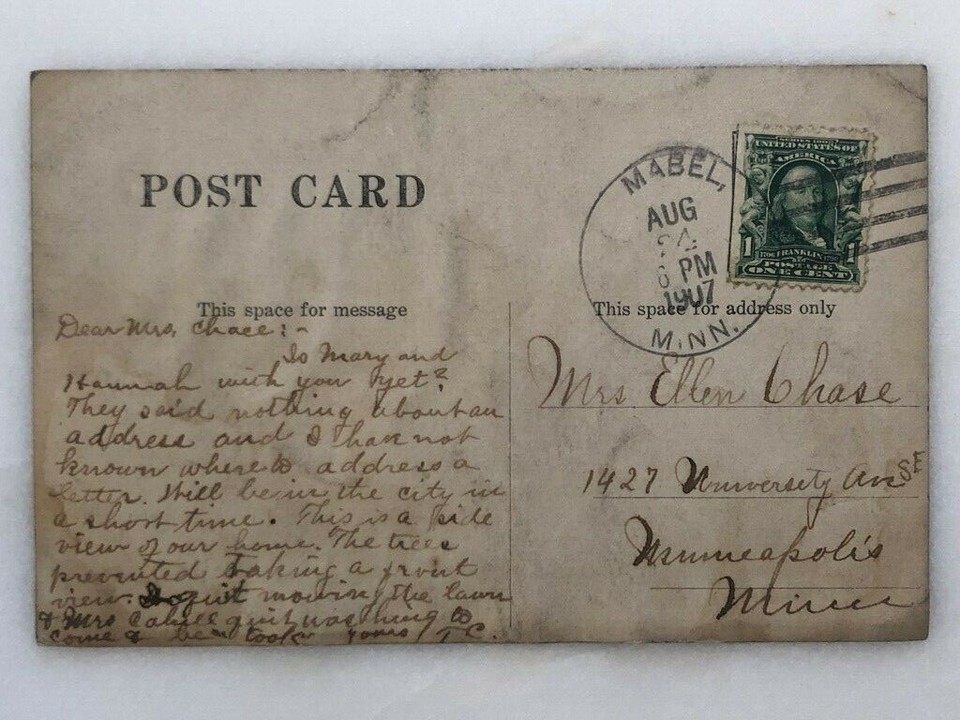 POST CARD
MABEL,
AUG
24
6 PM
1907
MINN.
SERIES 1902
UNITED STATES OF
AMERICA
1 1
1706 FRANKLIN 1790
POSTAGE
ONE CENT
This space for message
This space for address only
Dear Mrs. Chace:-
Is Mary and
Hannah with you yet?
They said nothing about an
address and I have not
known where to address a
letter. Will be in the city in
a short time. This is a side
view of our home. The trees
prevented taking a front
view. I quit mowing the lawn
& Mrs Cahill quit washing to
come & be took yours T.C.
Mrs Ellen Chase
1427 University Ave SE
Minneapolis
Minn